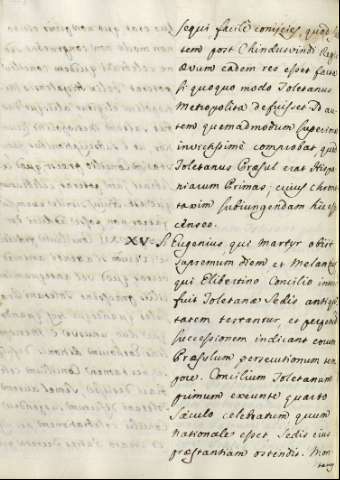 sequi facile conijcies, quod
tem post Chindasvindi Regis
ævum eadem res esset facta
si quoquo modo Toletanus
Metropolita defuisset. Id au-
tem quemadmodum superius
invictissime comprobat, quod
Toletanus Præsul erat Hispa-
niarum Primas; ejus chrono-
taxim subjungendam hic es
censeo.
XV. S. Eugenius qui Martyr obijt
supremum diem et Melantius
qui Elibertino Concilio inter
fuit Toletanæ Sedis antiqui-
tatem testantur, et
successionem indicant eorum
Præsulum persecutionum tem
pore. Concilium Toletanum
primum exeunte quarto
Sæculo celebratum quum
nationale esset, Sedis ejus
præstantiam ostendit. Mon-
tanus